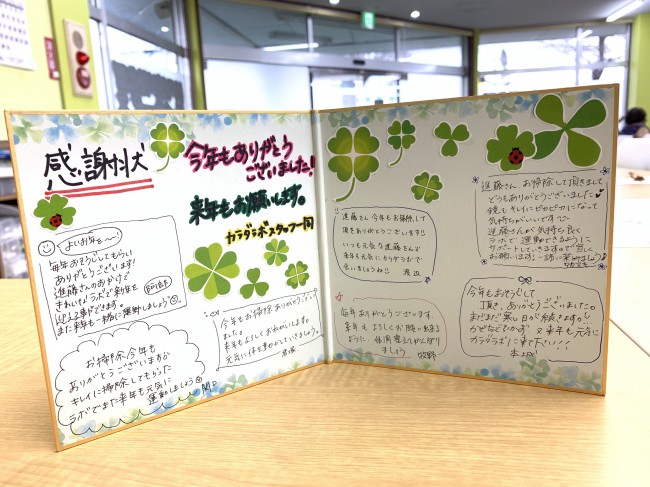 感謝状
今年もありがとう
ございました!
来年もお願いします。
カラダラボスタッフ一同
よいお年を〜!
毎年おそうじしてもらい
ありがとうございます!
進藤さんのおかげで
きれいなラボで新年を
迎える事ができます。
また来年も一緒に運動しましょう
お掃除今年も
ありがとうございます
キレイに掃除してもらった
ラボでまた来年も元気に
運動しましょう
今年もお掃除ありがとうござい
ました。
来年もよろしくおねがいします。
元気に体を動かしていきましょう。
進藤さん 今年もお掃除して
頂きありがとうございます!!
いつも元気な進藤さんと
来年も元気にカラダラボで
会いましょうね!!
渡辺
毎年ありがとうございます
来年も よろしくお願い致します
ように 体調
しましょう
牧野
進藤さん お掃除して頂きまして
どうもありがとうございました
鏡も キレイに ピカピカになって
気持ちがいいですー
進藤さんが 気持ち良く
ラボで 運動できるように
サポートしていきますので 宜しく
お願いします。
今年もおそうじして
頂き、ありがとうございました。
まだまだ寒い日が続きますが
かぜなどひかず 又来年も元気に
カラダラボに来て下さい!!